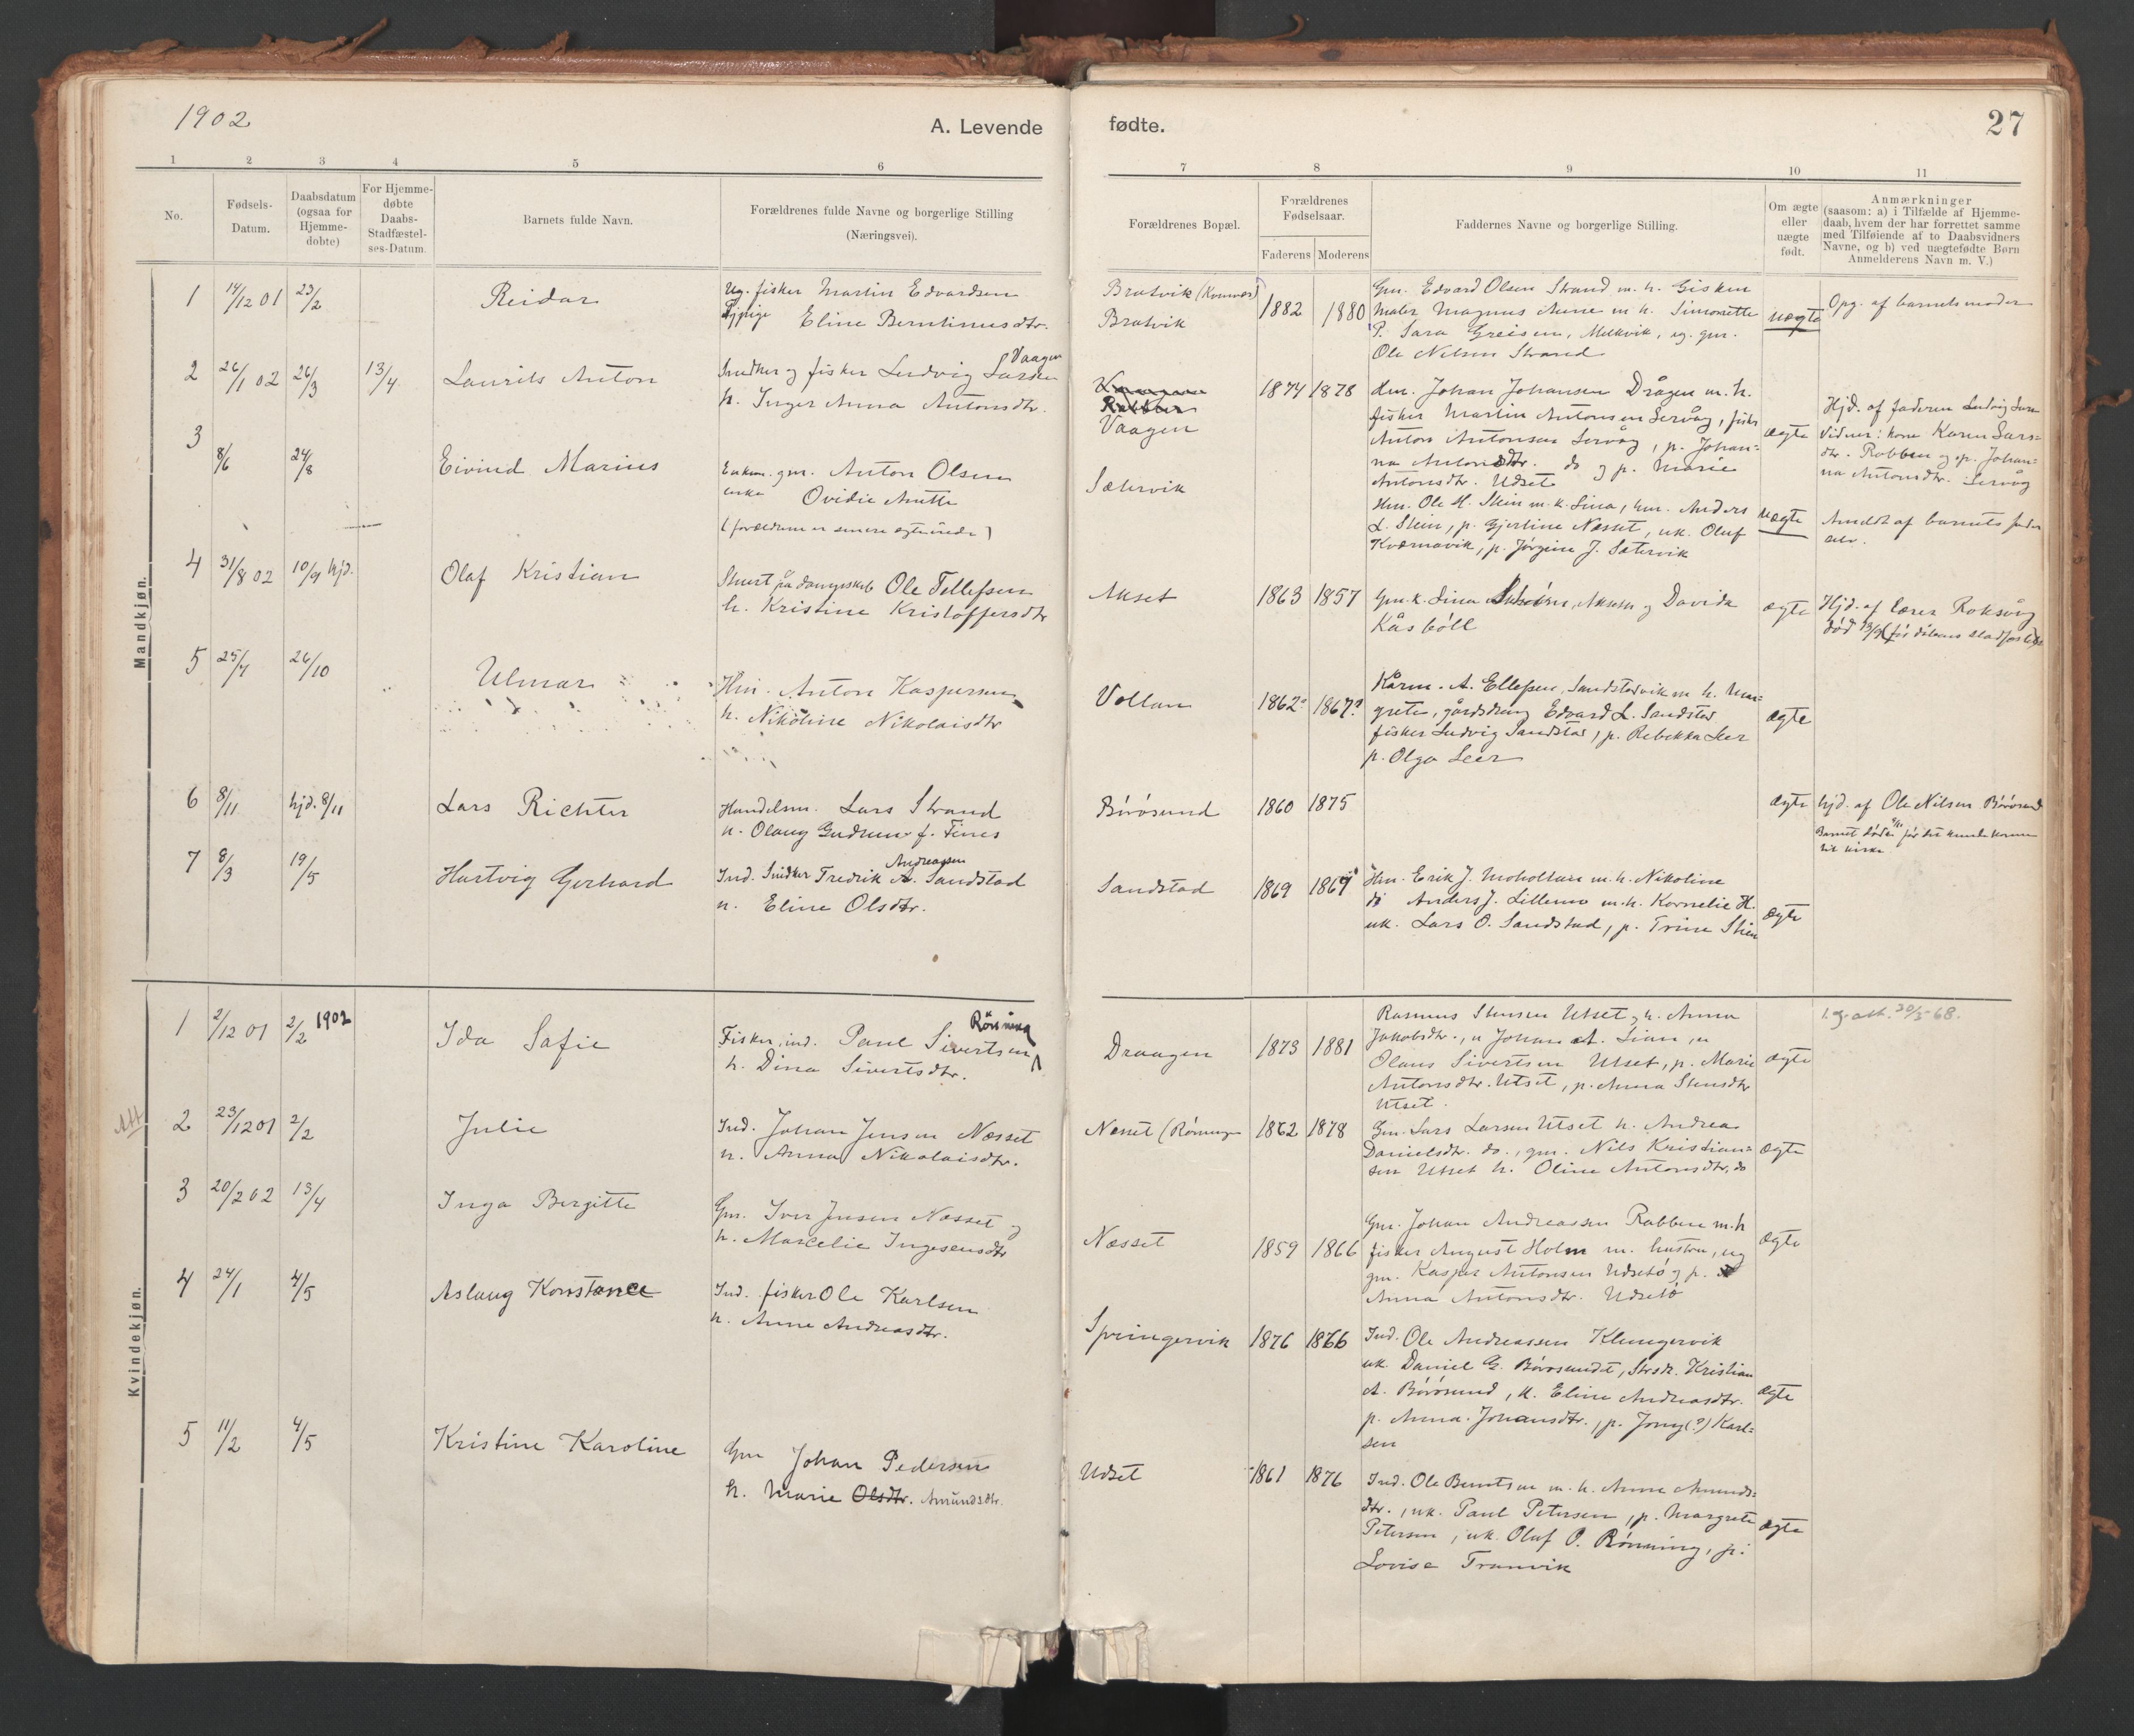 1902
A. Levende
fødte.
27
1 2 3 4 5 6
7 8 9 10 11
No.
Fødsels-
Datum.
Daabsdatum
(ogsaa for
Hjemme-
døbte)
For Hjemme-
døbte
Daabs-
Stadfæstel-
ses-Datum.
Barnets fulde Navn.
Forældrenes fulde Navne og borgerlige Stilling
(Næringsvei).
Forældrenes Bopæl.
Forældrenes
Fødselsaar.
Faderens
Moderens
Faddernes Navne og borgerlige Stilling.
Om ægte
eller
uægte
født.
Anmærkninger
(saasom: a) i Tilfælde af Hjemme-
daab, hvem der har forrettet samme
med Tilføiende af to Daabsvidners
Navne, og b) ved uægtefødte Børn
Anmelderens Navn m. V.)
Mandkjøn.
1 14/12 01 23/2 Reidar
Ug. fisker Martin Edvardsen
Pige Eline Berntinusdtr.
Bratvik
Bratvik
1882 1880
Gm. Edvard Olsen Strand m. h. Gisken
Maler Magnus Aune m h. Simonette
P. Sara Greisen, Melkvik, ug. gm.
Ole Nilsen Strand
uægte
Opg. af barnets moder
2 26/1 02 26/3 13/4 Laurits Anton
Vaagen
Snedker og fisker Ludvig Larsen
h. Inger Anna Antonsdtr.
Robben
Vaagen
1874 1878
Gm. Johan Johansen Drågen m. h.
fisker Martin Antonsen Servåg, fisker
Anton Antonsen Servåg, p. Johan-
na Antonsdtr. do og p. Marie
Antonsdtr. Udset
ægte
Hjd. af faderen Ludvig Larsen
Vidner: kone Karen Lars-
dtr. Robben og p. Johan-
na Antonsdtr. Servåg
3 8/6 24/8 Eivind Marius
Enkem. gm. Anton Olsen
enke Ovidie Anette
(forældrene er senere egteviede)
Sætervik
Hm. Ole H. Stein m. k. Lina, hm. Anders
L. Stein, p. Gjertine Næsset, uk. Oluf
Kværnavik, p. Jørgine J. Sætervik
uægte
Anmeldt af barnets fader
selv.
4 31/8 02 10/9 hjd. Olaf Kristian
Stuert på dampskib Ole Tellefsen
h. Kristine Kristoffersdtr
Akset
1863 1857
Gm. k. Lina Akset og Davida
Kåsböll
ægte
Hjd. af lærer Roksvåg
død før dåbens stadfæstelse
5 25/7 26/10 Ulmar
Hm. Anton Kaspersen
h. Nikoline Nikolaisdtr
Vollan
1862? 1867?
Kårm. A. Ellefsen, Sandstadvik m h. Mar-
grete, gårdsdreng Edvard L. Sandstad
fisker Ludvig Sandstad, p. Rebekka Leer
p. Olga Leer
ægte
6 8/11 hjd. 8/11 Lars Richter
Handelsm. Lars Strand
h. Olaug Gudrun f. Fines
Börösund
1860 1875
ægte
hjd. af Ole Nilsen Börösund
Barnet døde før det kunde komme
til kirke
7 8/3 19/5 Hartvig Gerhard
Andreassen
Ind. Snidker Fredrik A. Sandstad
h. Eline Olsdtr.
Sandstad
1869 1869
Hm. Erik J. Moholtan m. h. Nikoline
do Anders J. Lillemo m. h. Kornelie H.
uk. Lars O. Sandstad, p. Trine Stein
ægte
Kvindekjøn.
1 2/12 01 2/2 1902 Ida Safie
Rönning
Fisker, ind. Paul Sivertsen
h. Dina Sivertsdtr.
Draagen
1873 1881
Rasmus Stensen Utset og h. Anna
Jakobsdtr., u Johan A. Lian, u
Olaus Sivertsen Utset, p. Marie
Antonsdtr. Utset, p. Anna Stensdtr
Utset.
ægte
1. g. att. 30/5-68.
Att
2 23/12 01 2/2 Julie
Ind. Johan Jensen Næsset
h. Anna Nikolaisdtr.
Næsset (Rönningen
1862 1878
Gm. Lars Larsen Utset h. Andrea
Danielsdtr. do., gm. Nils Kristian-
sen Utset h. Oline Antonsdtr. do
ægte
3 20/2 02 13/4 Inga Bergitte
Gm. Iver Jensen Næsset og
h. Marcelie Ingesensdtr
Næsset
1859 1866
Gm. Johan Andreassen Rabben m. h
fisker August Holm m. hustru, ug
gm. Kasper Antonsen Udset og p.
Anna Antonsdtr. Udset
ægte
4 24/1 4/5 Aslaug Konstance
Ind. fisker Ole Karlsen
h. Anne Andreasdtr.
Springervik
1876 1866
Ind. Ole Andreassen Klungervik
uk. Daniel G. Börösundt, Strsdr. Kristian
A. Börösund, k. Eline Andreasdtr.
p. Anna Johansdtr., p. Jonny (?) Karl-
sen
ægte
5 11/2 4/5 Kristine Karoline
Gm Johan Pedersen
h. Marie Olsdtr. Amundsdtr.
Udset
1861 1876
Ind. Ole Berntsen m. h. Anne Amunds-
dtr., uk. Paul Petersen, p. Margrete
Petersen, uk. Oluf O. Rönning, p.
Lovise Tranvik
ægte